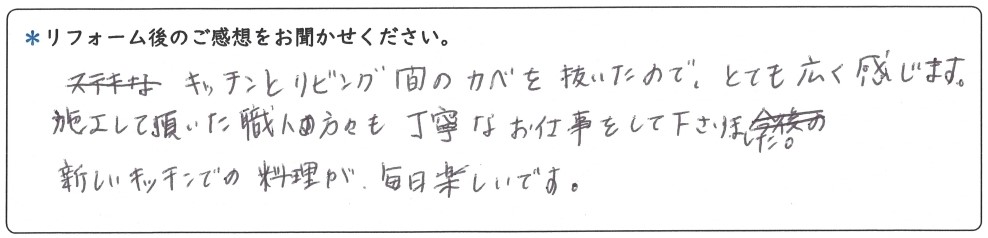 *リフォーム後のご感想をお聞かせください。
ステキな キッチンとリビング間のカベを抜いたので、とても広く感じます。
施工して頂いた職人の方々も丁寧なお仕事をして下さいました。
新しいキッチンでの料理が、毎日楽しいです。